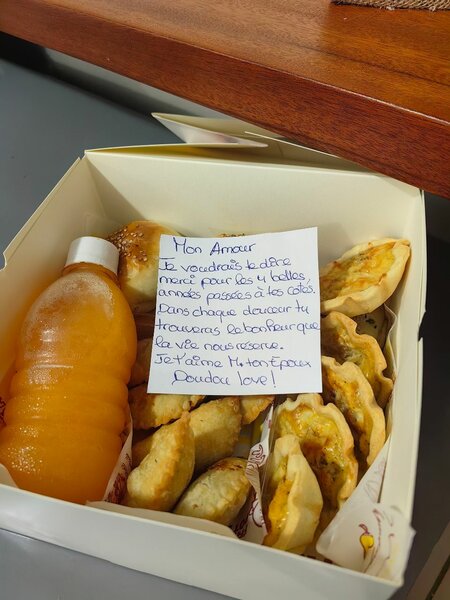 Mon Amour
Je voudrais te dire
merci pour les 4 belles
années passées à tes cotés.
Dans chaque douceur tu
trouveras le bonheur que
la vie nous réserve.
Je t'aime M. ton Epoux
Doudou love!